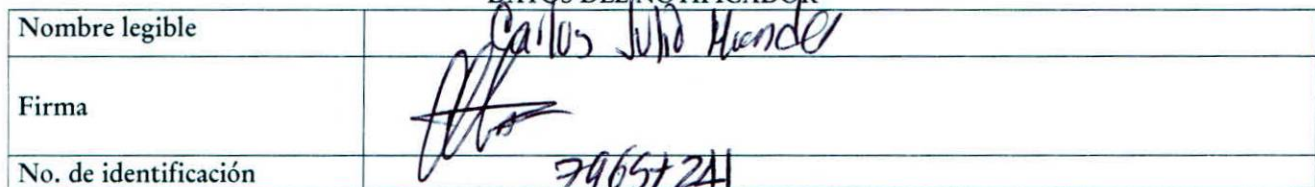 DATOS DEL NOTIFICADOR
Nombre legible Carlos Julio
Firma
No. de identificación 79657241